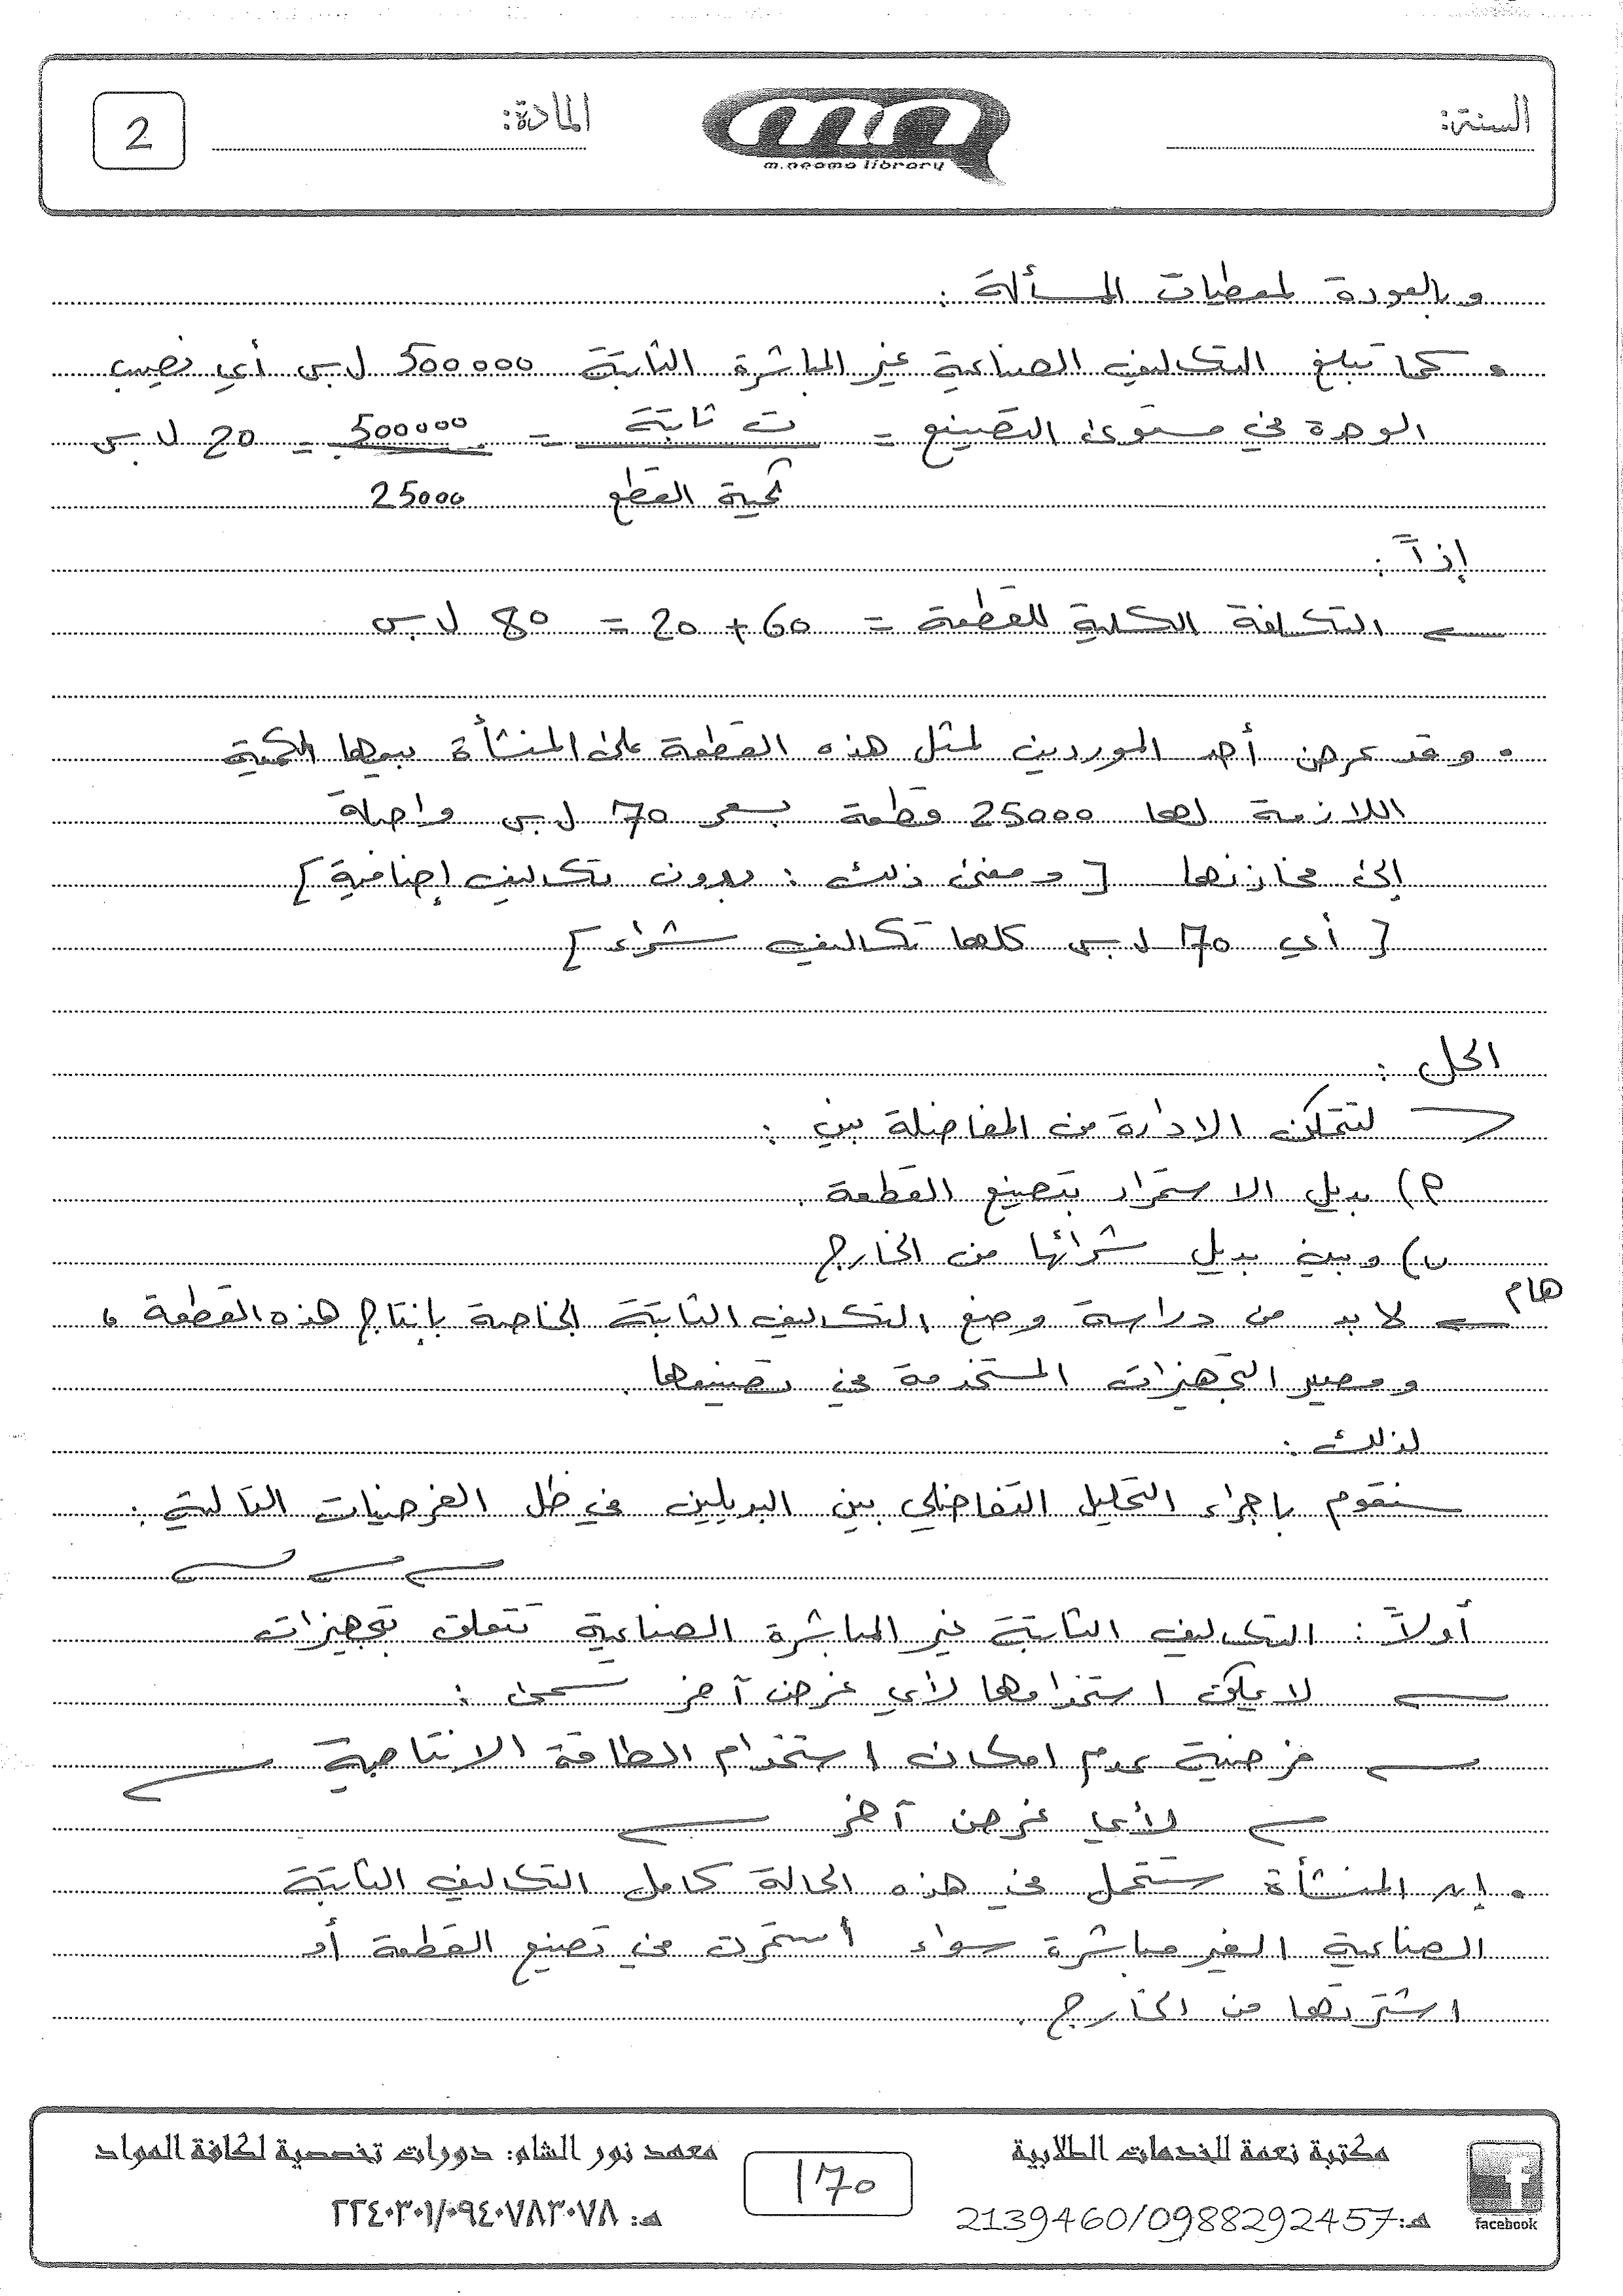 السنة:
m.neama library
المادة:
2
وبالعودة لمعطيات المسألة :
• كما تبلغ التكاليف الصناعية غير المباشرة الثابتة 500000 ل.س أي نصيب
الوحدة في مستوى التصنيع = ت ثابتة / كمية القطع = 500000 / 25000 = 20 ل.س
إذاً :
التكلفة الكلية للقطعة = 60 + 20 = 80 ل.س
• وقد عرض أحد الموردين لمثل هذه القطعة على المنشأة بيعها الكمية
اللازمة لها 25000 قطعة بسعر 70 ل.س واصلة
إلى مخازنها [ ومعنى ذلك : بدون تكاليف إضافية ]
[ أي 70 ل.س كلها تكاليف شراء ]
الحل :
لتتمكن الادارة من المفاضلة بين :
P) بديل الاستمرار بتصنيع القطعة .
ب) وبين بديل شرائها من الخارج
هام
لا بد من دراسة وضع التكاليف الثابتة الخاصة بإنتاج هذه القطعة ،
ومصير التجهيزات المستخدمة في تصنيعها .
لذلك :
سنقوم باجراء التحليل التفاضلي بين البديلين في ظل الفرضيات التالية :
أولاً : التكاليف الثابتة غير المباشرة الصناعية تتعلق بتجهيزات
لا يمكن استخدامها لأي غرض آخر تسمى :
فرضية عدم امكان استخدام الطاقة الانتاجية
لأي غرض آخر
• إن المنشأة ستتحمل في هذه الحالة كامل التكاليف الثابتة
الصناعية الغير مباشرة سواء استمرت في تصنيع القطعة أو
اشترتها من الخارج .
مكتبة نعمة للخدمات الطلابية
هـ: 2139460/0988292457
facebook
170
معهد نور الشام: دورات تخصصية لكافة المواد
هـ: ٢٢٤٠٣٠١/٠٩٤٠٧٨٣٠٧٨